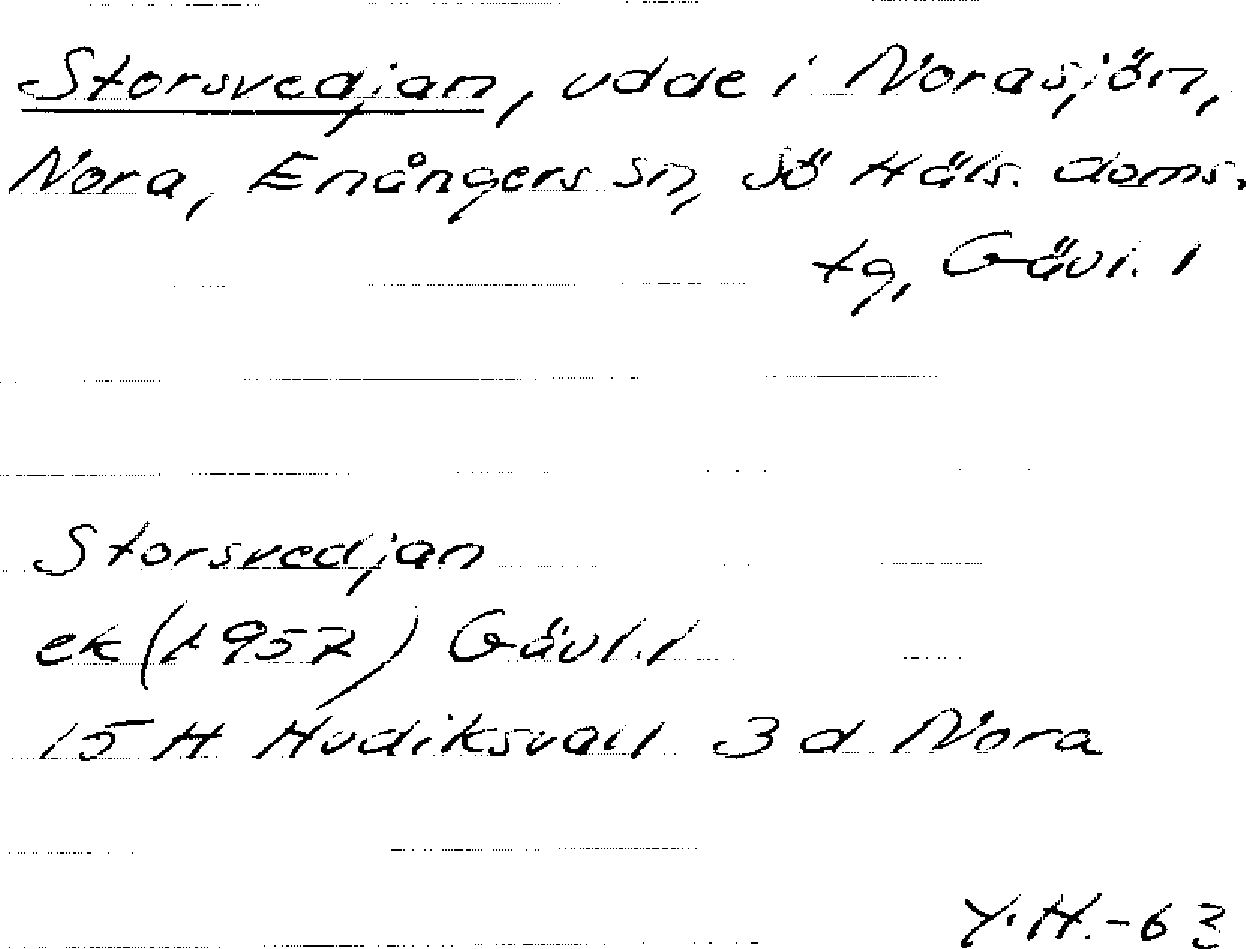 Storsvedjan, udde i Norasjön,
Nora, Enångers sn, Sö Häls. doms.
tg, Gävl. l
Storsvedjan
ek (1957) Gävl. l
15 H Hudiksvall 3 d Nora
Y.H.-63